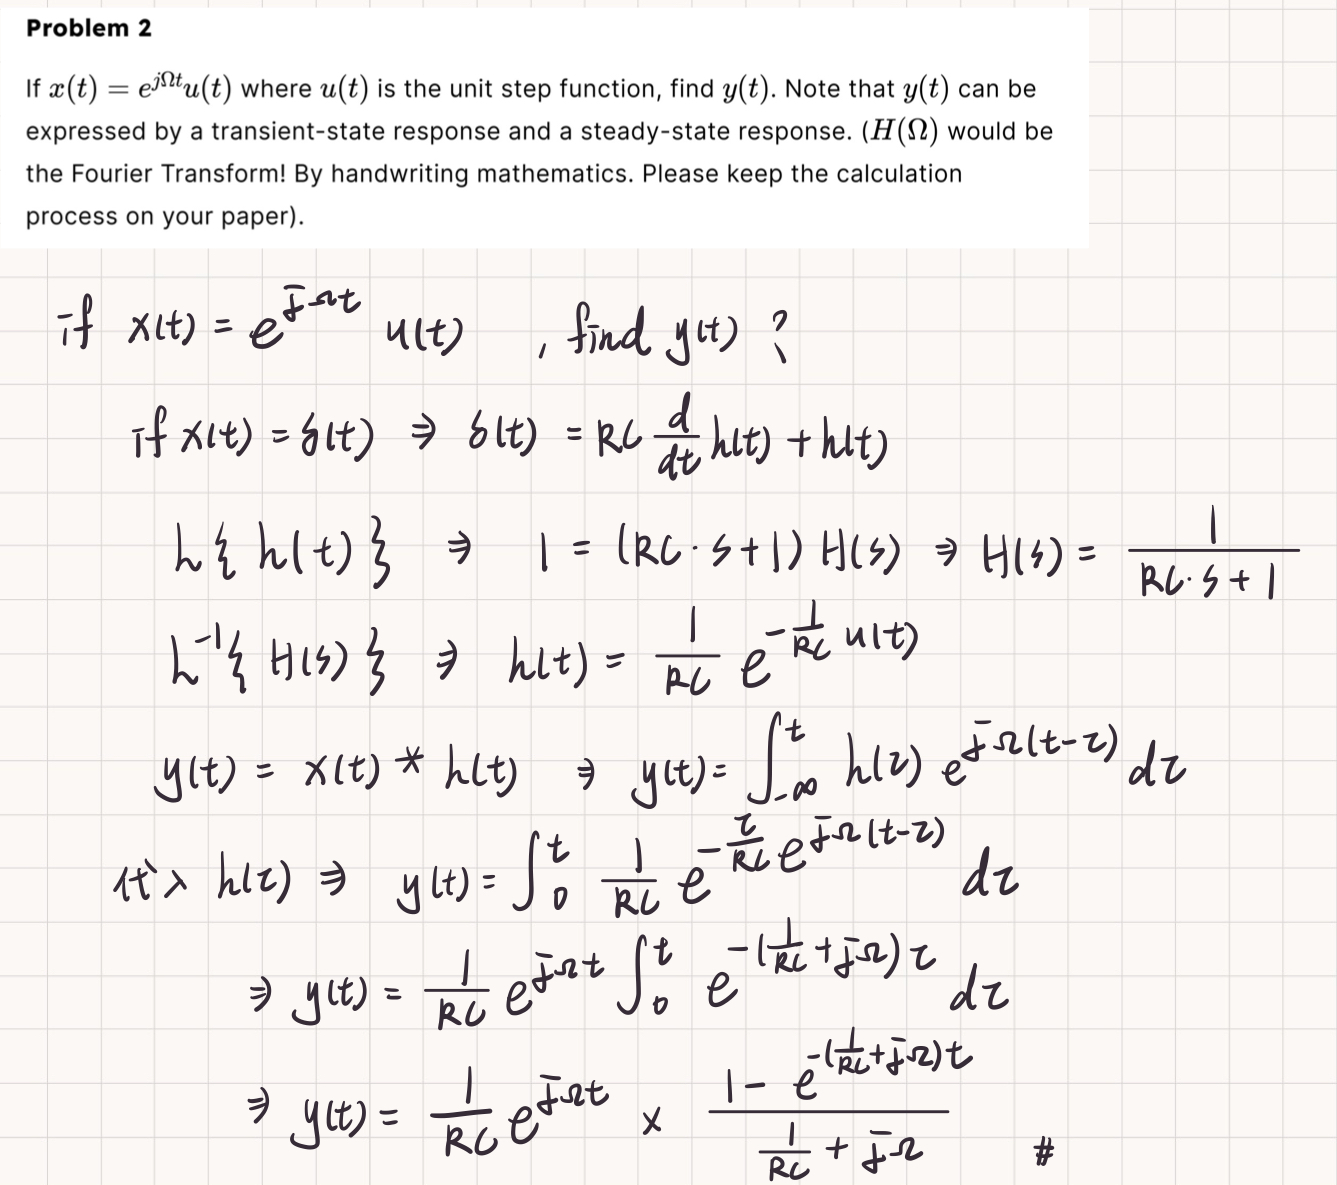 Problem 2
If x(t) = e^{jΩt}u(t) where u(t) is the unit step function, find y(t). Note that y(t) can be
expressed by a transient-state response and a steady-state response. (H(Ω) would be
the Fourier Transform! By handwriting mathematics. Please keep the calculation
process on your paper).
if x(t) = e^{jΩt} u(t) , find y(t) ?
if x(t) = δ(t) ⇒ δ(t) = RC d/dt h(t) + h(t)
h{ h(t) } ⇒ 1 = (RC·s+1) H(s) ⇒ H(s) = 1/(RC·s+1)
h^{-1}{ H(s) } ⇒ h(t) = 1/RC e^{-1/RC u(t)}
y(t) = x(t) * h(t) ⇒ y(t) = ∫_{-∞}^{t} h(τ) e^{jΩ(t-τ)} dτ
代入 h(τ) ⇒ y(t) = ∫_{0}^{t} 1/RC e^{-τ/RC} e^{jΩ(t-τ)} dτ
⇒ y(t) = 1/RC e^{jΩt} ∫_{0}^{t} e^{-(1/RC+jΩ)τ} dτ
⇒ y(t) = 1/RC e^{jΩt} × (1-e^{-(1/RC+jΩ)t})/(1/RC+jΩ) #